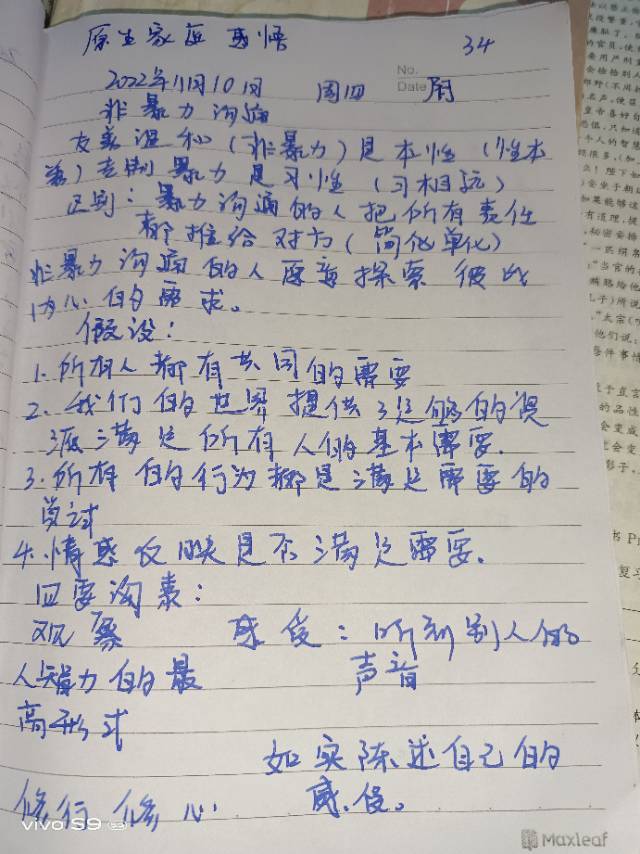 原生家庭感悟 34
No.
2022年11月10日 周四 Date
非暴力沟通
友善温和(非暴力)是本性(性本
善)专制暴力是习性(习相远)
区别:暴力沟通的人把所有责任
都推给对方(简化单化)
非暴力沟通的人愿意探索彼此
内心的需求。
假设:
1.所有人都有共同的需要
2.我们的世界提供了足够的资
源满足所有人的基本需要.
3.所有的行为都是满足需要的
尝试
4.情感反映是否满足需要.
四要沟素:
观察 感受:听到别人的
人类智力的最 声音
高形式
如实陈述自己的
修行修心 感受。
vivo S9
Maxleaf